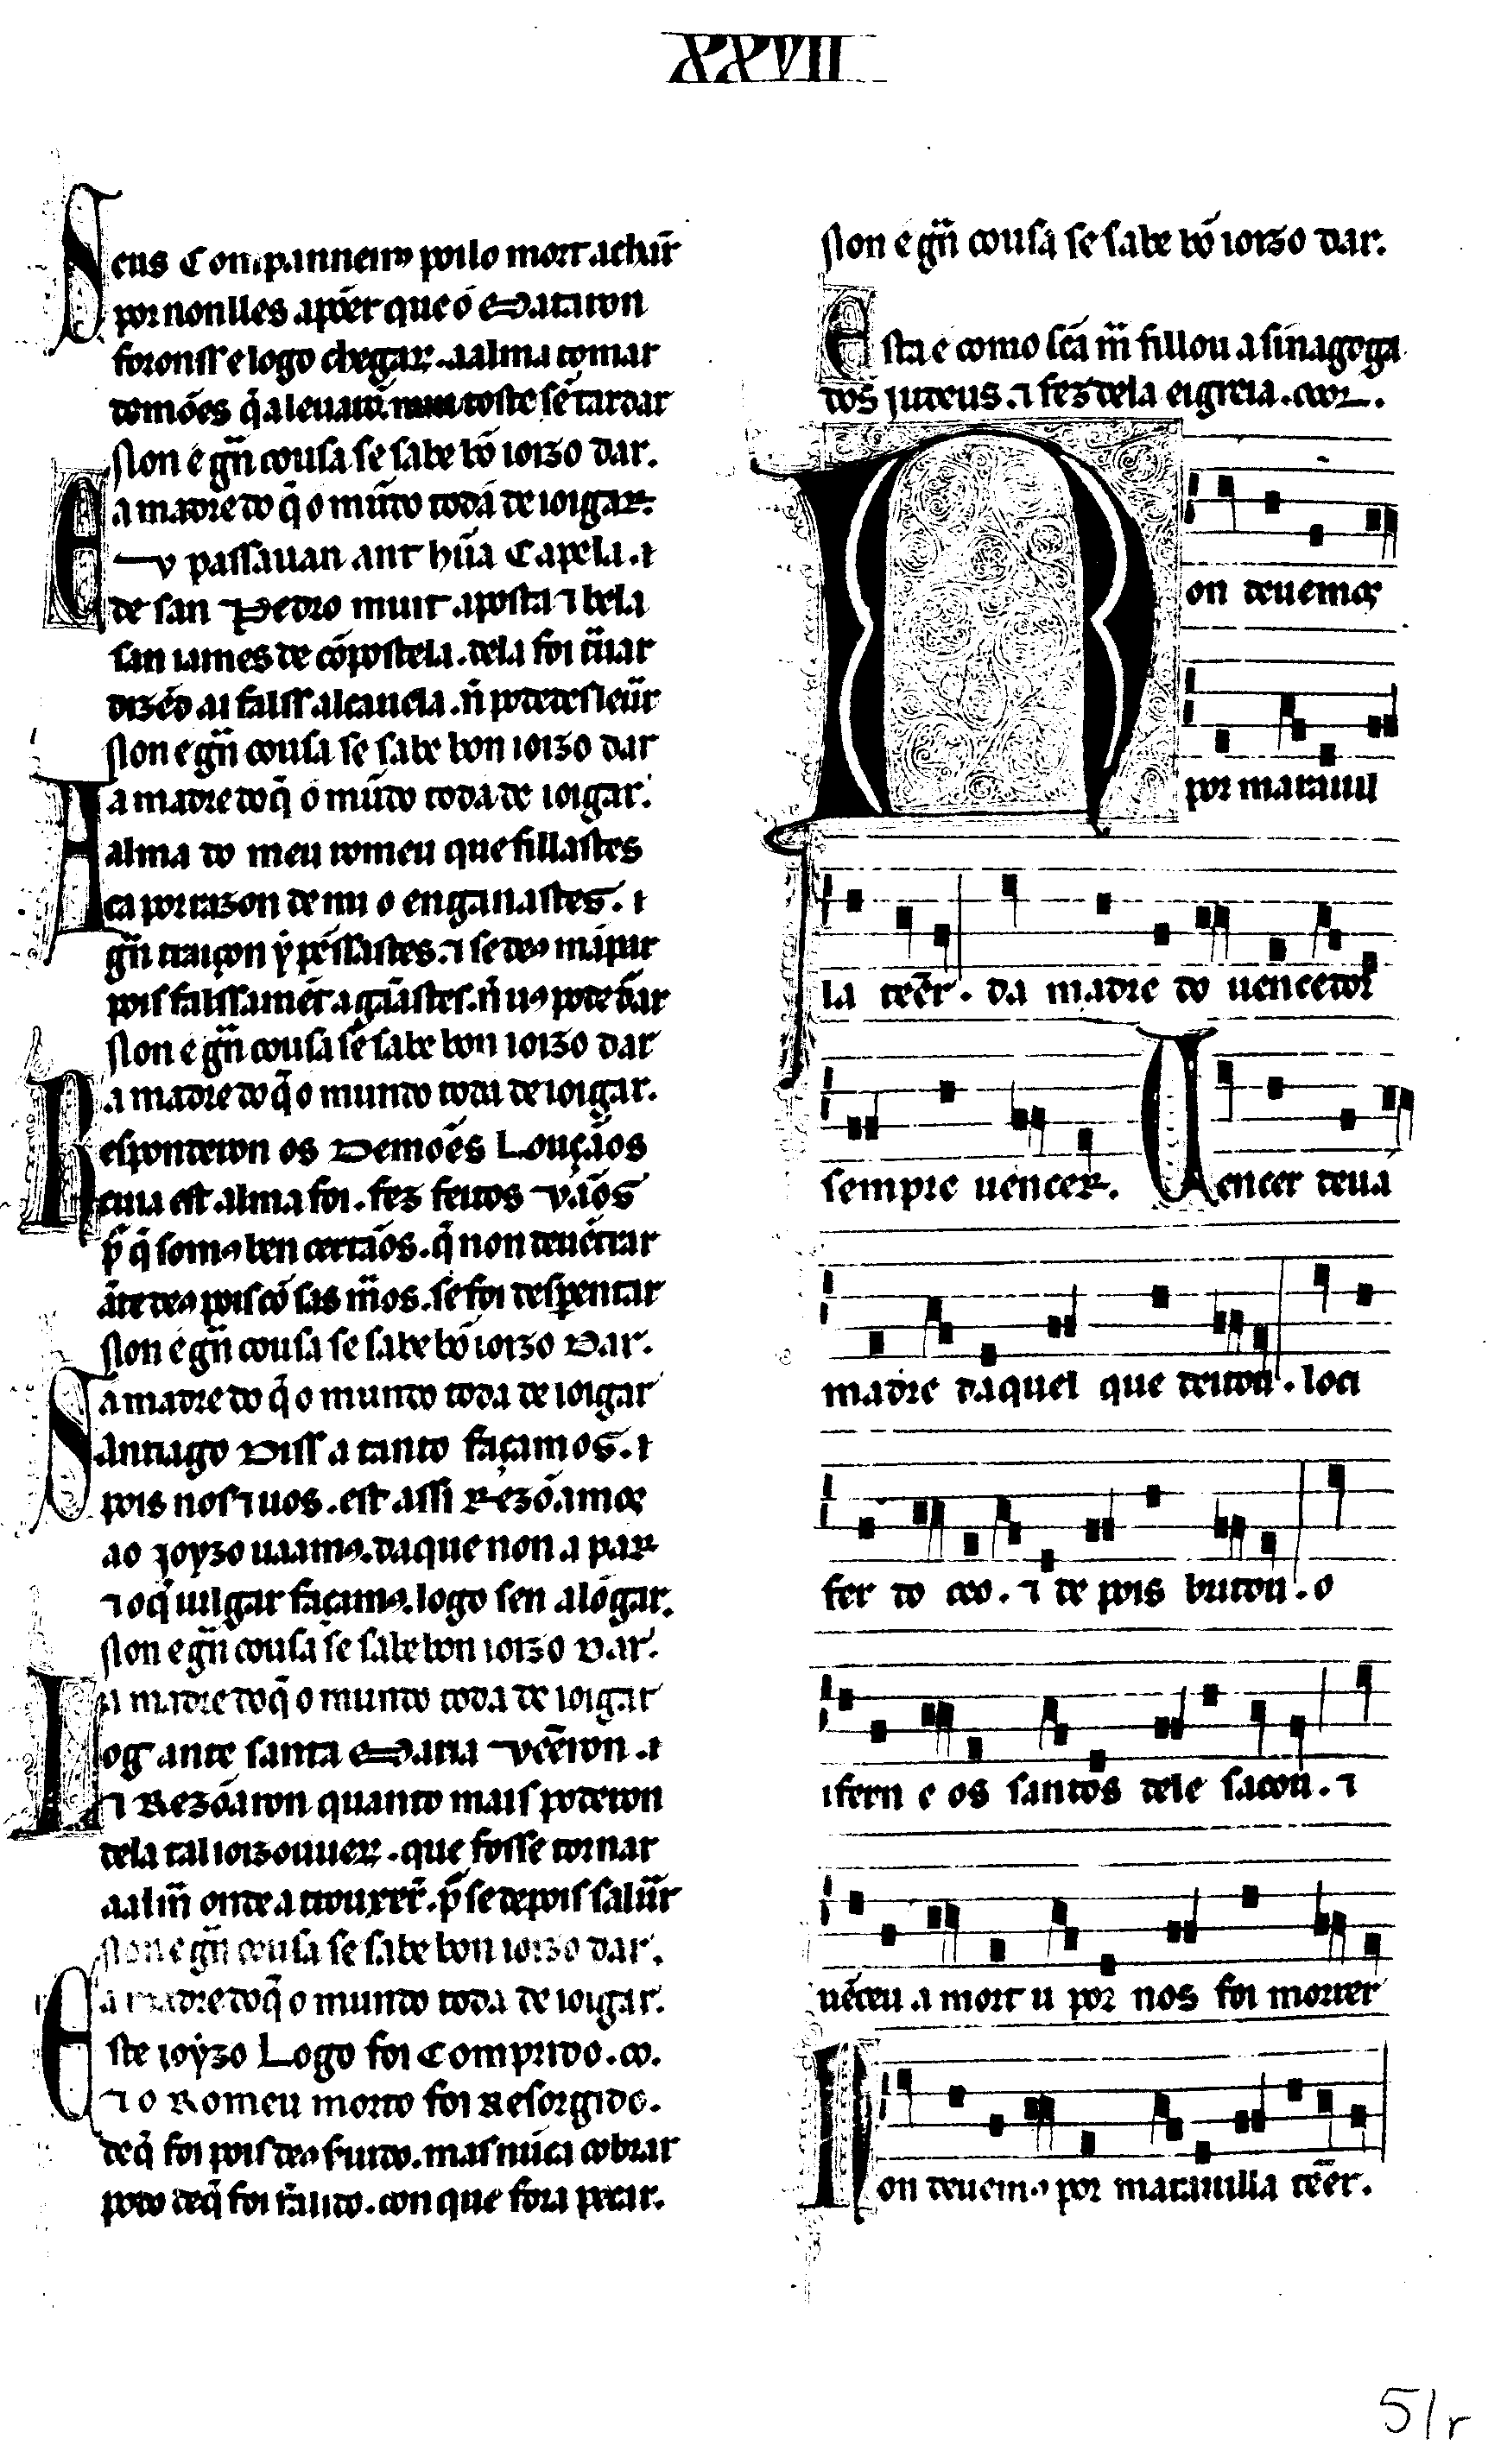 XXVII
Seus Companneiros poilo mort achar̄
por nonlles apōer que ó Mataron
foronss e logo chegar. aalma tomar
demões q̄ a leuarō. toste sē tardar
Non é gn̄ cousa se sabe bō ioizo dar.
a madre do q̄ o mūdo todá de ioigar.
E v passauan ant hūa Capela. ⁊
de san Pedro muit aposta ⁊ bela
san iames de cōpostela. dela foi trauar
dizēd ai falss alcauela. nō podedes leuar
Non e gn̄ cousa se sabe bon ioizo dar
a madre doq̄ o mūdo toda de ioigar.
A alma do meu romeu que fillastes
ca por razon de mi o enganastes. ⁊
gn̄ traiçon ẏ pēssastes. ⁊ se deꝰ mápar
pois falssamēt a gāastes. nō uꝰ pode durar
Non e gn̄ cousa se sabe bon ioizo dar
a madre doq̄ o mundo toda de ioigar.
Responderon os Demões Louçāos
cuia est alma foi. fez feitos vāos
pᵉ q̄ somꝰ ben certāos. q̄ non deuētrar
āte deꝰ pois cō sas māos. se foi desperentar
Non é gn̄ cousa se sabe bō ioizo Dar.
a madre do q̄ o mundo toda de ioigar
Santiago Diss a tanto façamos. ⁊
pois nos ⁊ uos. est assi Rezōamos
ao Joyzo uaamꝰ. daque non a par
⁊ oq̄ iulgar façamꝰ. logo sen alōgar.
Non e gn̄ cousa se sabe bon ioizo Dar.
a madre doq̄ o mundo toda de ioigar
Log ante santa Maria vēeron. ⁊
⁊ Rezōaron quanto mais poderon
dela tal ioizouuer̄. que fosse tornar
aalm̄ onde a trouxer̄. pᵉ se depois saluar̄
Non e gn̄ cousa se sabe bon ioizo dar.
a madre doq̄ o mundo toda de ioigar.
Este ioẏzo Logo foi Comprido. co.
⁊ o Romeu morto foi Resorgido.
deq̄ foi pois deꝰ seruido. mas nūca cobrar
podo deq̄ foi falido. con que fora pecar.
Non e gn̄ cousa se sabe bō ioizo dar.
Esta é como sc̄a m̄ fillou a sinagoga
dos judeus. ⁊ fez dela eigreia. cor.
Non deuemos
por marauil
la tēer. da madre do uencedor
sempre uencer. Uencer deua
madre daquel que deitou. loci
fer do ceo. ⁊ de pois britou. o
ifern e os santos dele sacou. ⁊
uēceu a mort u por nos foi morrer
Non deuemꝰ por marauilla tēer.
51r